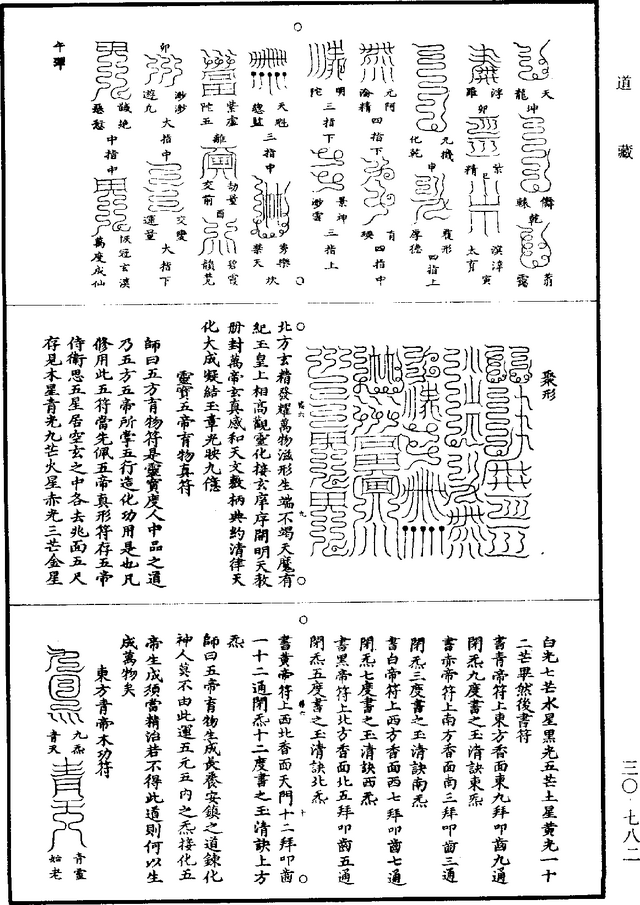 道藏
天坤龍
僑乾
翁靄
浮卯
精
溟滓寅太育
九機申化乾
履形四指上厚德
元阿四指下淪精
育四指中
明三指下陀
景神三指上渺雲
天魁三指中總監
秀樂坎禁天
紫虛離陀五
劫量酉交前
碧霞
卯渺渺大指中遊九
交變大指下運量
午渾
中指中
恢冠玄漠萬度成仙
聚形
北方玄精發耀萬物滋形生端不竭天魔有
紀玉皇上相高觀靈化接玄庠序闡明天教
册封萬帝玄真感和天文數柄典約清律天
化大成凝結玉章光映九億
靈寶五帝育物真符
師曰五方育物符是靈寶度人中品之道
乃五方五帝所掌五行造化功用是也凡
修用此五符當先佩五帝真形符存五帝
侍衛思五星居空玄之中各去兆面五尺
存見木星青光九芒火星赤光三芒金星
白光七芒水星黑光五芒土星黃光一十
二芒畢然後書符
書青帝符上東方香面東九拜叩齒九通
閉炁九度書之玉清訣東炁
書赤帝符上南方香面南三拜叩齒三通
閉炁三度書之玉清訣南炁
書白帝符上西方香面西七拜叩齒七通
閉炁七度書之玉清訣西炁
書黑帝符上北方香面北五拜叩齒五通
閉炁五度書之玉清訣北炁
書黃帝符上西北香面天門十二拜叩齒
一十二通閉炁十二度書之玉清訣上方
炁
師曰五帝育物生成長養安鎮之道鍊化
神人莫不由此運五元五內之炁接化五
帝生成須當精治若不得此道則何以生
成萬物矣
東方青帝木功符
九炁青天
青靈始老
三〇·七八二